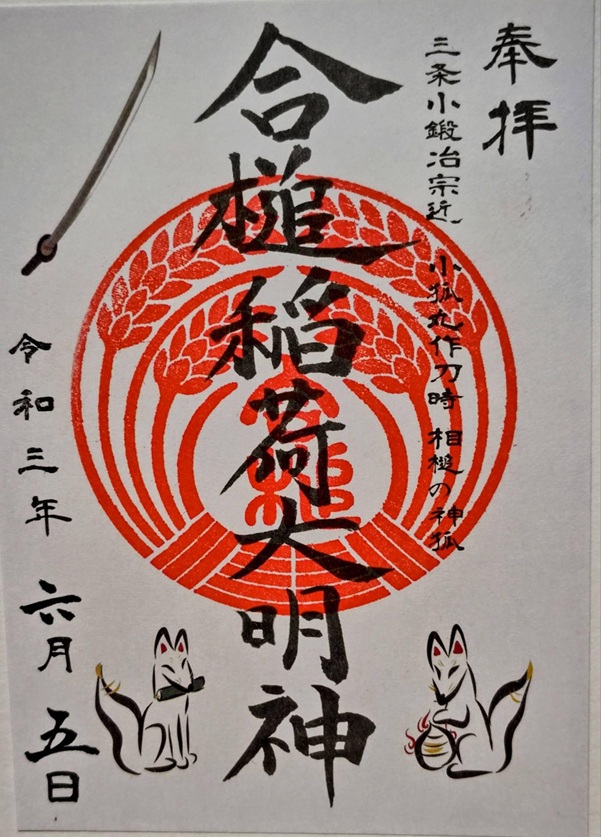 奉拝
三条小鍛冶宗近 小狐丸作刀時 相槌の神狐
合槌稲荷大明神
令和三年 六月 五日